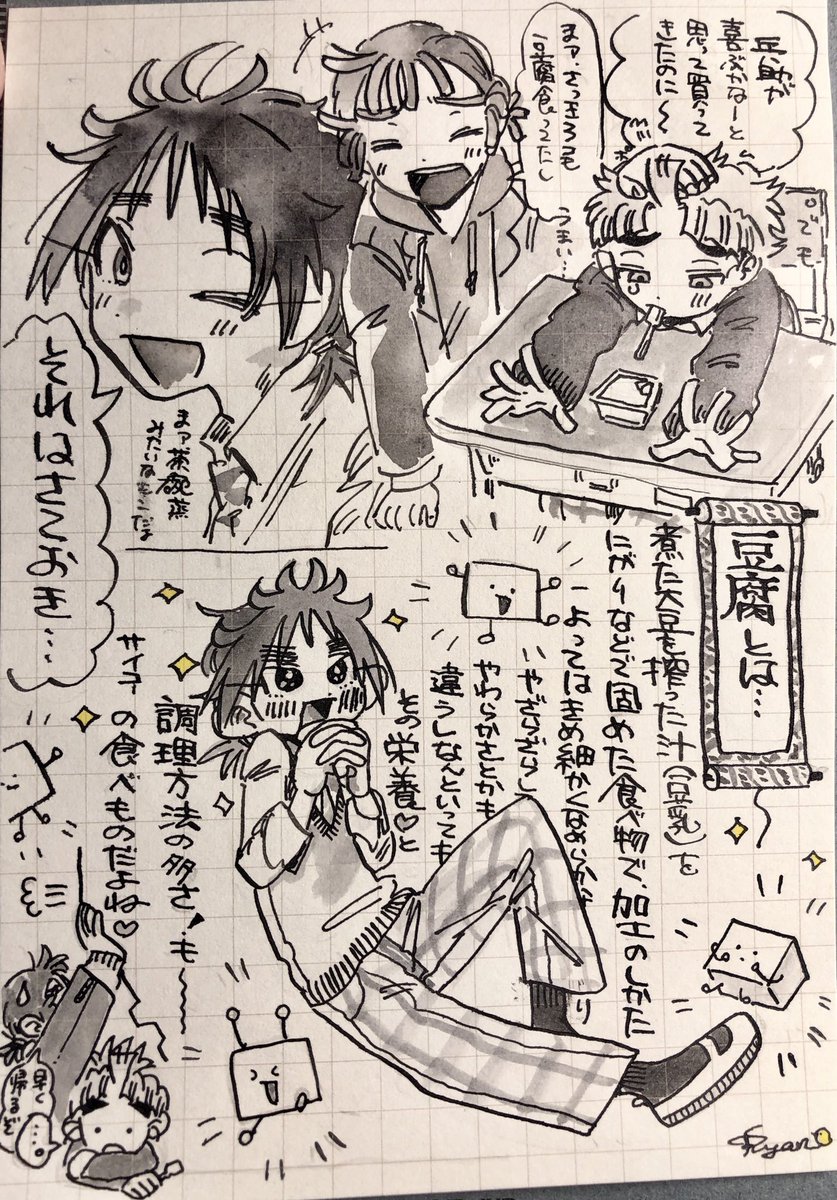 兵助が
喜ぶかなーと
思って買って
きたのに〜
でも
まァ、さっきろも
豆腐食べてたし
うまい…
それはさておき…
まァ茶碗蒸
みたいな
豆腐とは…
煮た大豆を搾った汁(豆乳)を
にがりなどで固めた食べ物で、加工のしかた
によってはきめ細かくなめらか
やざらざらし
やわらかさとかも
違うしなんといっても
その栄養♡と
調理方法の多さ!も〜
サイコーの食べものだよね♡
早く
帰るぞ
…
Ryan